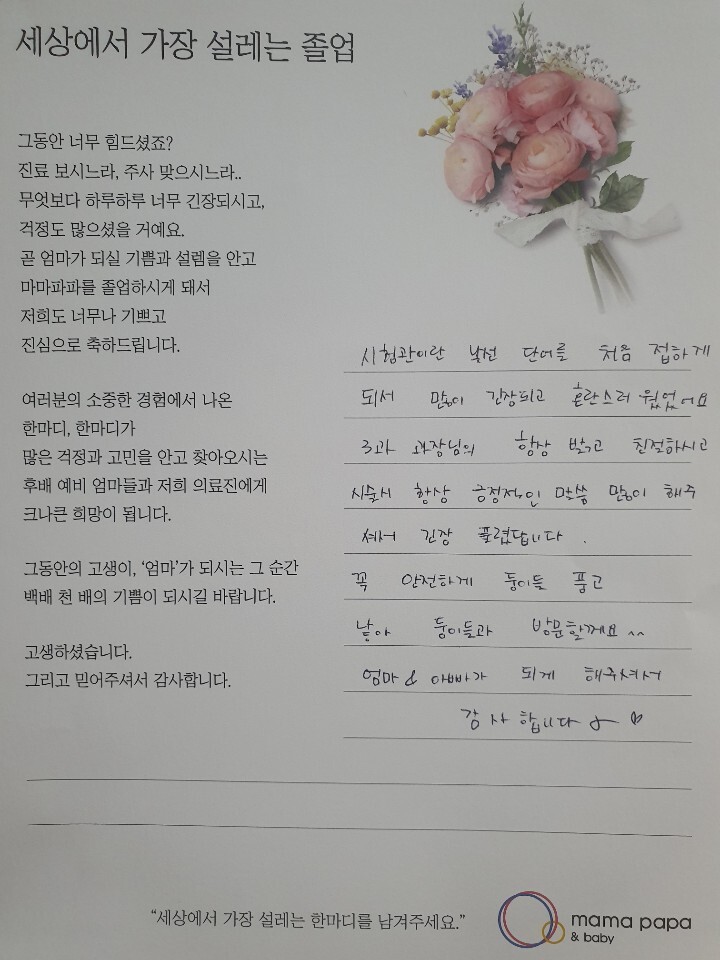 세상에서 가장 설레는 졸업
그동안 너무 힘드셨죠?
진료 보시느라, 주사 맞으시느라..
무엇보다 하루하루 너무 긴장되시고,
걱정도 많으셨을 거예요.
곧 엄마가 되실 기쁨과 설렘을 안고
마마파파를 졸업하시게 돼서
저희도 너무나 기쁘고
진심으로 축하드립니다.
여러분의 소중한 경험에서 나온
한마디, 한마디가
많은 걱정과 고민을 안고 찾아오시는
후배 예비 엄마들과 저희 의료진에게
크나큰 희망이 됩니다.
그동안의 고생이, '엄마'가 되시는 그 순간
백배 천 배의 기쁨이 되시길 바랍니다.
고생하셨습니다.
그리고 믿어주셔서 감사합니다.
시험관이란 낯선 단어를 처음 접하게
되서 많이 긴장되고 혼란스러웠었어요
3과 과장님의 항상 밝고 친절하시고
시술시 항상 긍정적인 말씀 많이 해주
셔서 긴장 풀렸답니다.
꼭 안전하게 둥이들 품고
낳아 둥이들과 방문할께요 ^^
엄마 & 아빠가 되게 해주셔서
감사합니다 ♡
"세상에서 가장 설레는 한마디를 남겨주세요."
mama papa
& baby